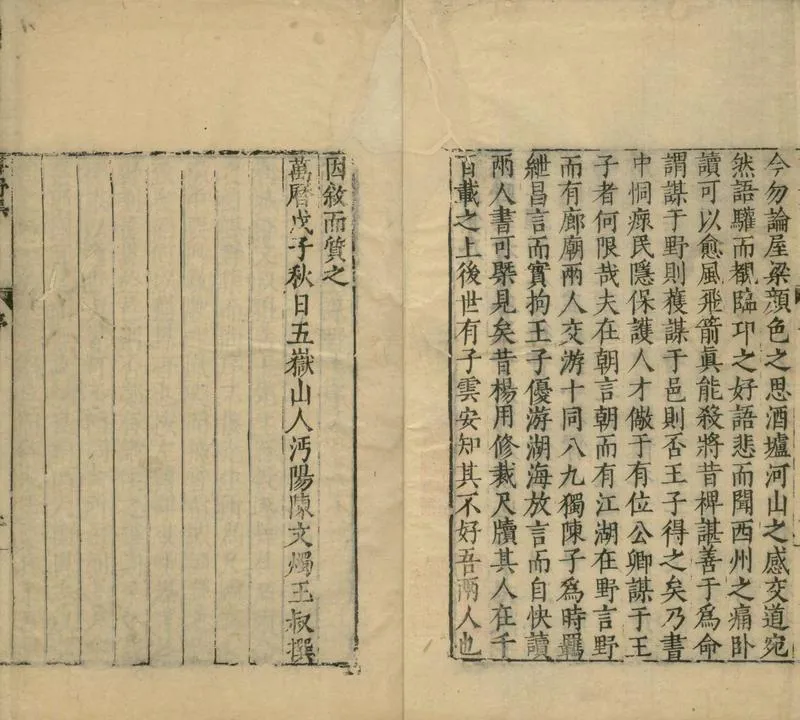 今勿論屋梁顔色之思酒壚河山之感交道宛
然語驩而覩臨卭之好語悲而聞西州之痛卧
讀可以愈風飛箭眞能殺將昔裨諶善于爲命
謂謀于野則獲謀于邑則否王子得之矣乃書
中恫瘝民隱保護人才儆于有位公卿謀于王
子者何限哉夫在朝言朝而有江湖在野言野
而有廊廟兩人交游十同八九獨陳子爲時羈
紲昌言而實拘王子優游湖海放言而自快讀
兩人書可槩見矣昔楊用修裁尺牘其人在千
百載之上後世有子雲安知其不好吾兩人也
因敘而質之
萬曆戊子秋日五嶽山人沔陽陳文燭玉叔撰
序